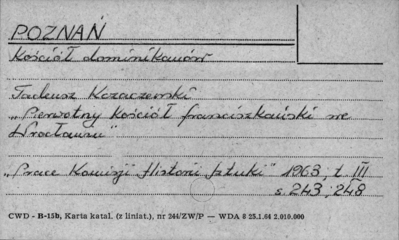 POZNAŃ
Kościół dominikanów
Tadeusz Kozaczewski
„Pierwotny kościół franciszkański we
Wrocławiu"
„Prace Komisji Historii Sztuki" 1963, t. III
s. 243; 248
CWD - B-15b, Karta katal. (z liniat.), nr 244/ZW/P — WDA 8 25.1.64 2.010.000